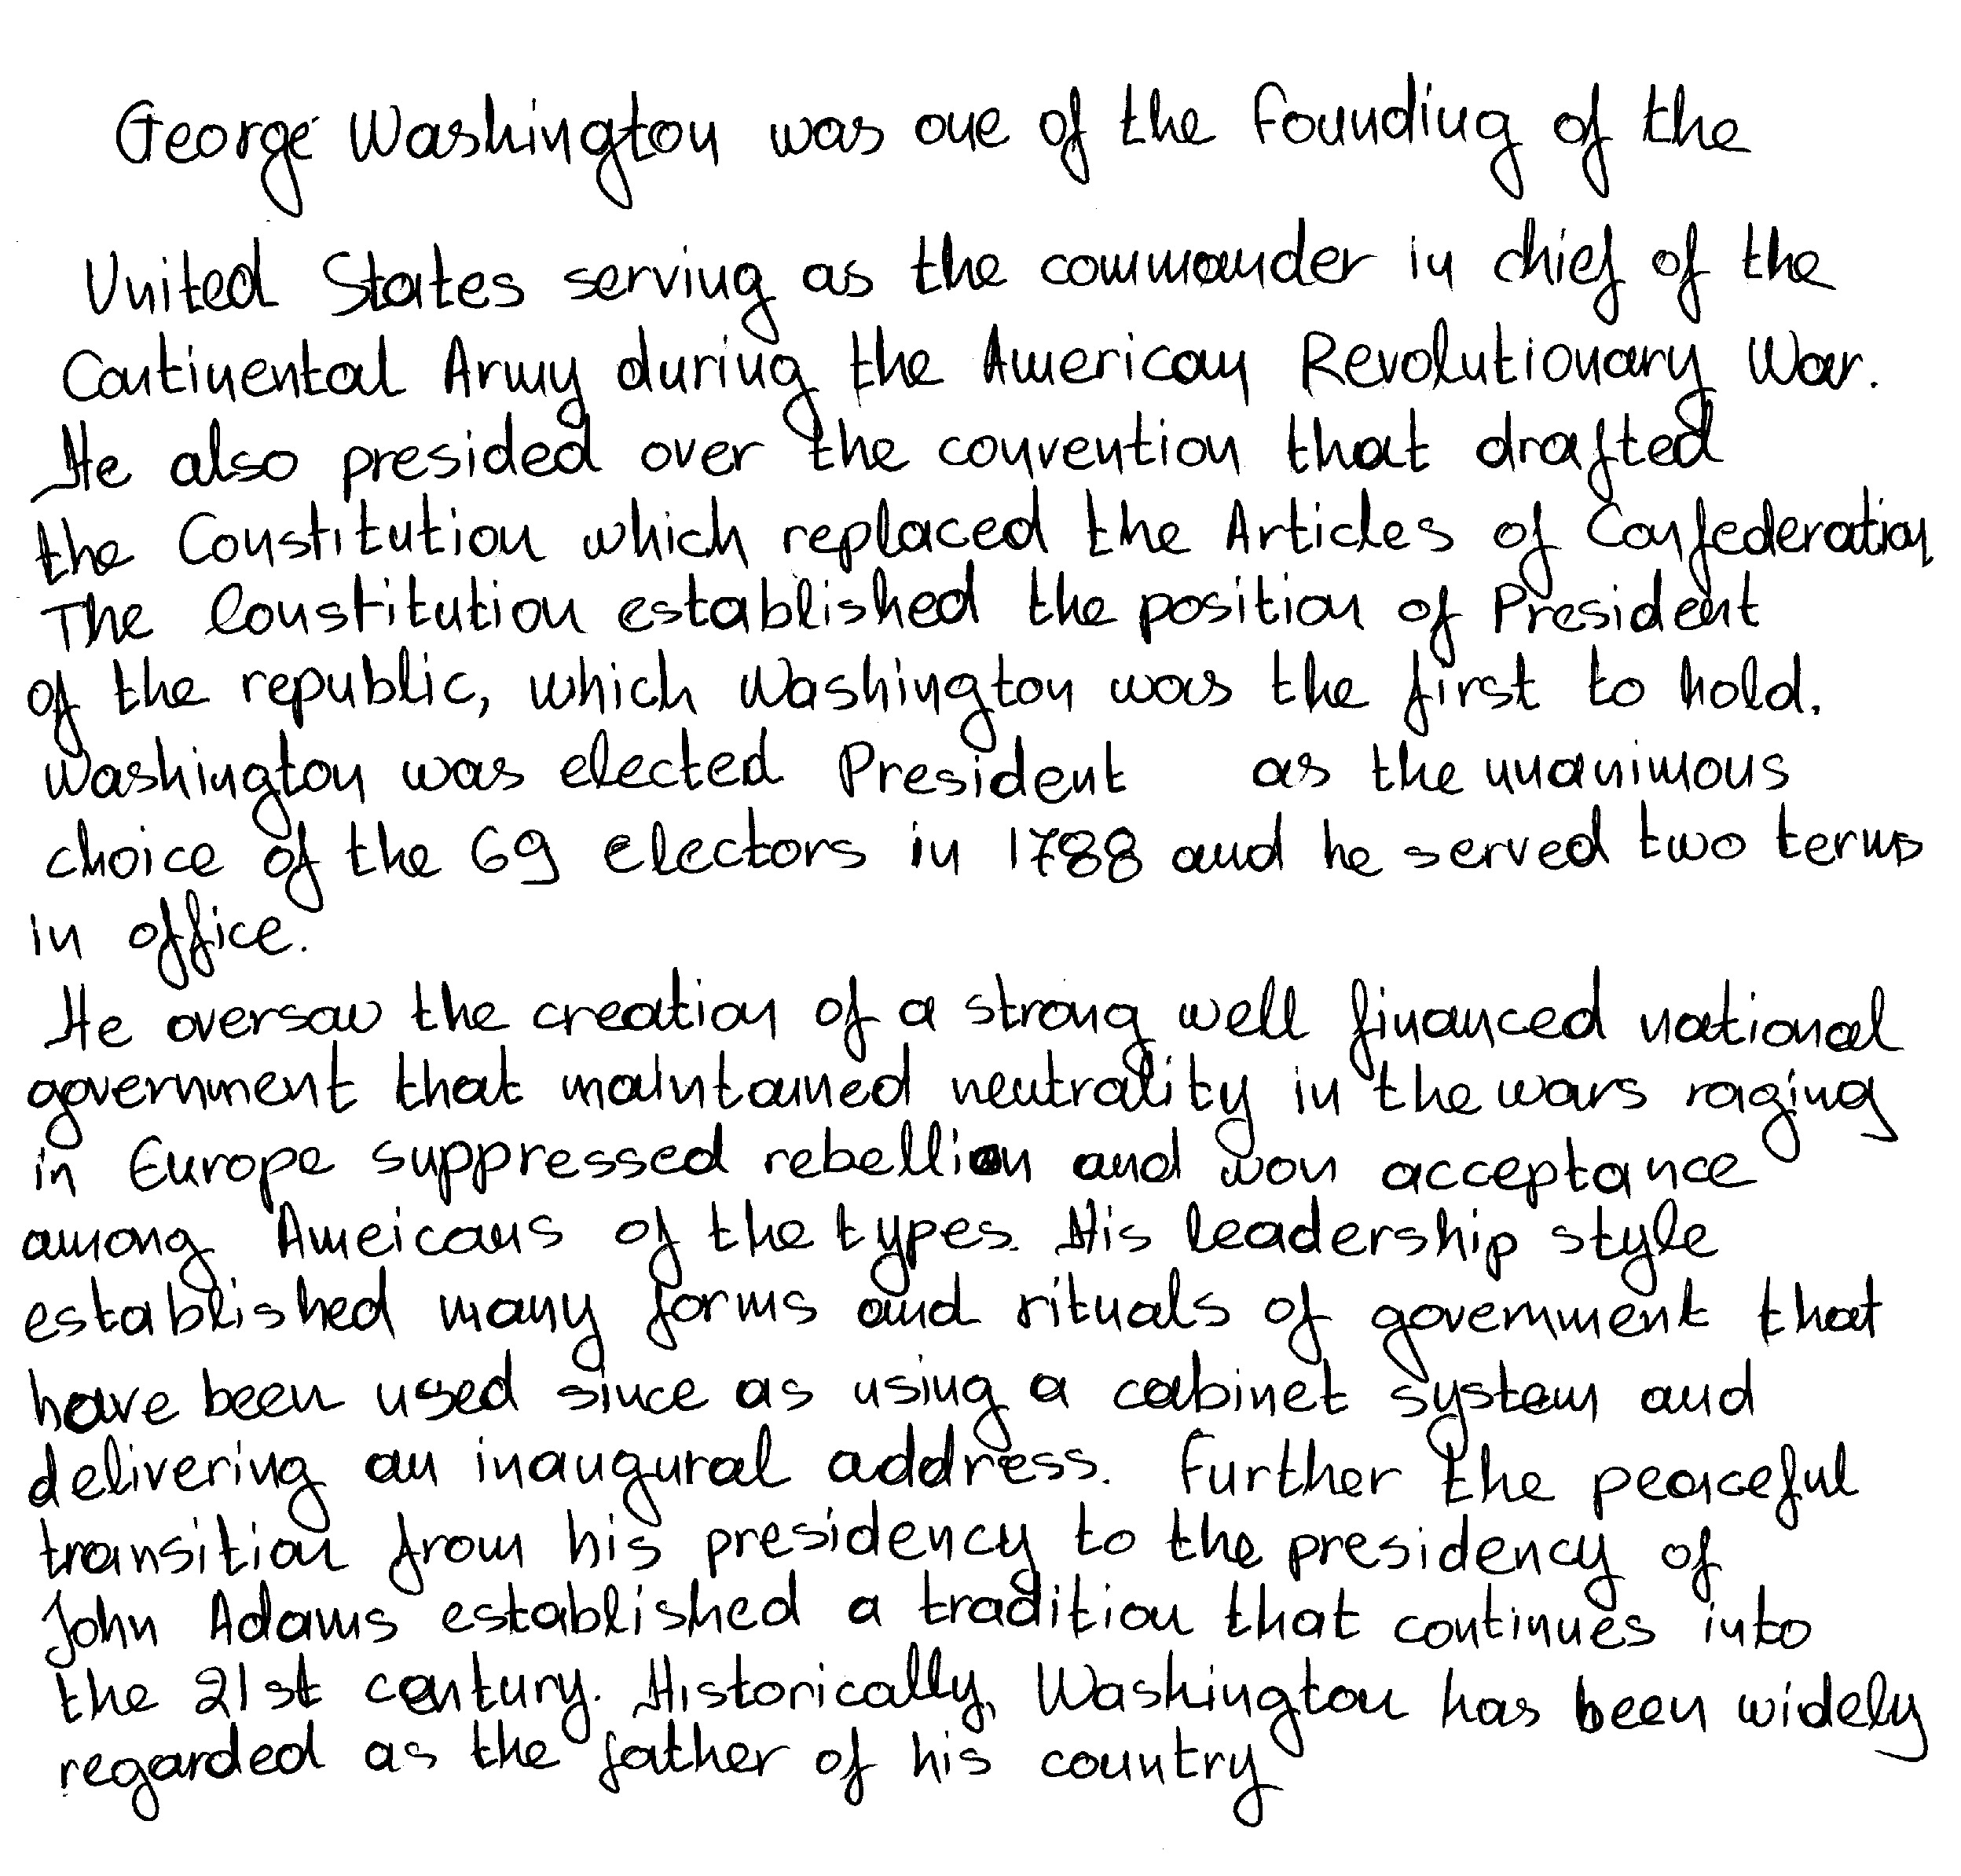 George Washington was one of the Founding of the
United States serving as the commander in chief of the
Continental Army during the American Revolutionary War.
He also presided over the convention that drafted
the Constitution which replaced the Articles of Confederation
The Constitution established the position of President
of the republic, which Washington was the first to hold.
Washington was elected President as the unanimous
choice of the 69 electors in 1788 and he served two terms
in office.
He oversaw the creation of a strong well financed national
government that maintained neutrality in the wars raging
in Europe suppressed rebellion and won acceptance
among Ameicans of the types. His leadership style
established many forms and rituals of government that
have been used since as using a cabinet system and
delivering an inaugural address. Further the peaceful
transition from his presidency to the presidency of
John Adams established a tradition that continues into
the 21st century. Historically, Washington has been widely
regarded as the father of his country